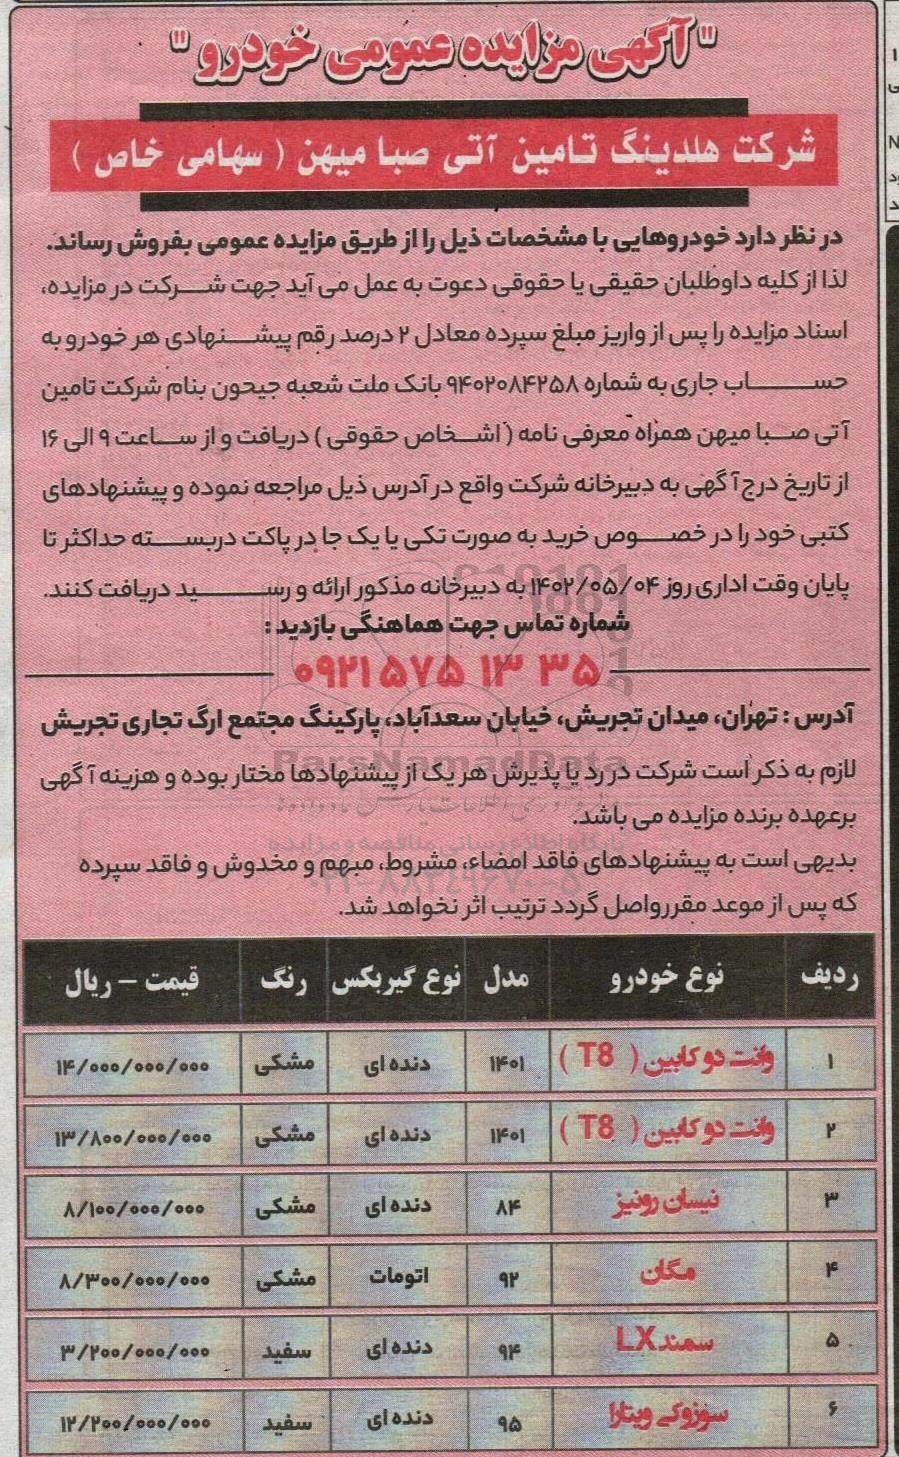 "آگهی مزایده عمومی خودرو"
شرکت هلدینگ تامین آتی صبا میهن ( سهامی خاص )
در نظر دارد خودروهایی با مشخصات ذیل را از طریق مزایده عمومی بفروش رساند.
لذا از کلیه داوطلبان حقیقی یا حقوقی دعوت به عمل می آید جهت شرکت در مزایده،
اسناد مزایده را پس از واریز مبلغ سپرده معادل ۲ درصد رقم پیشنهادی هر خودرو به
حساب جاری به شماره ۹۴۰۲۰۸۴۲۵۸ بانک ملت شعبه جیحون بنام شرکت تامین
آتی صبا میهن همراه معرفی نامه ( اشخاص حقوقی ) دریافت و از ساعت ۹ الی ۱۶
از تاریخ درج آگهی به دبیرخانه شرکت واقع در آدرس ذیل مراجعه نموده و پیشنهادهای
کتبی خود را در خصوص خرید به صورت تکی یا یک جا در پاکت دربسته حداکثر تا
پایان وقت اداری روز ۱۴۰۲/۰۵/۰۴ به دبیرخانه مذکور ارائه و رسید دریافت کنند.
شماره تماس جهت هماهنگی بازدید :
۰۹۲۱ ۵۷۵ ۱۳ ۳۵
آدرس : تهران، میدان تجریش، خیابان سعدآباد، پارکینگ مجتمع ارگ تجاری تجریش
ParsNamadData
لازم به ذکر است شرکت در رد یا پذیرش هر یک از پیشنهادها مختار بوده و هزینه آگهی
برعهده برنده مزایده می باشد.
پایگاه اطلاع رسانی مناقصه و مزایده
بدیهی است به پیشنهادهای فاقد امضاء، مشروط، مبهم و مخدوش و فاقد سپرده
۰۲۱-۸۸۳۴۹۶۷۰-۵
که پس از موعد مقرر واصل گردد ترتیب اثر نخواهد شد.
ردیف نوع خودرو مدل نوع گیربکس رنگ قیمت – ریال
۱ وانت دو کابین ( T8 ) ۱۴۰۱ دنده ای مشکی ۱۴/۰۰۰/۰۰۰/۰۰۰
۲ وانت دو کابین ( T8 ) ۱۴۰۱ دنده ای مشکی ۱۳/۸۰۰/۰۰۰/۰۰۰
۳ نیسان رونیز ۸۴ دنده ای مشکی ۸/۱۰۰/۰۰۰/۰۰۰
۴ مگان ۹۲ اتومات مشکی ۸/۳۰۰/۰۰۰/۰۰۰
۵ سمند LX ۹۴ دنده ای سفید ۳/۲۰۰/۰۰۰/۰۰۰
۶ سوزوکی ویتارا ۹۵ دنده ای سفید ۱۲/۲۰۰/۰۰۰/۰۰۰